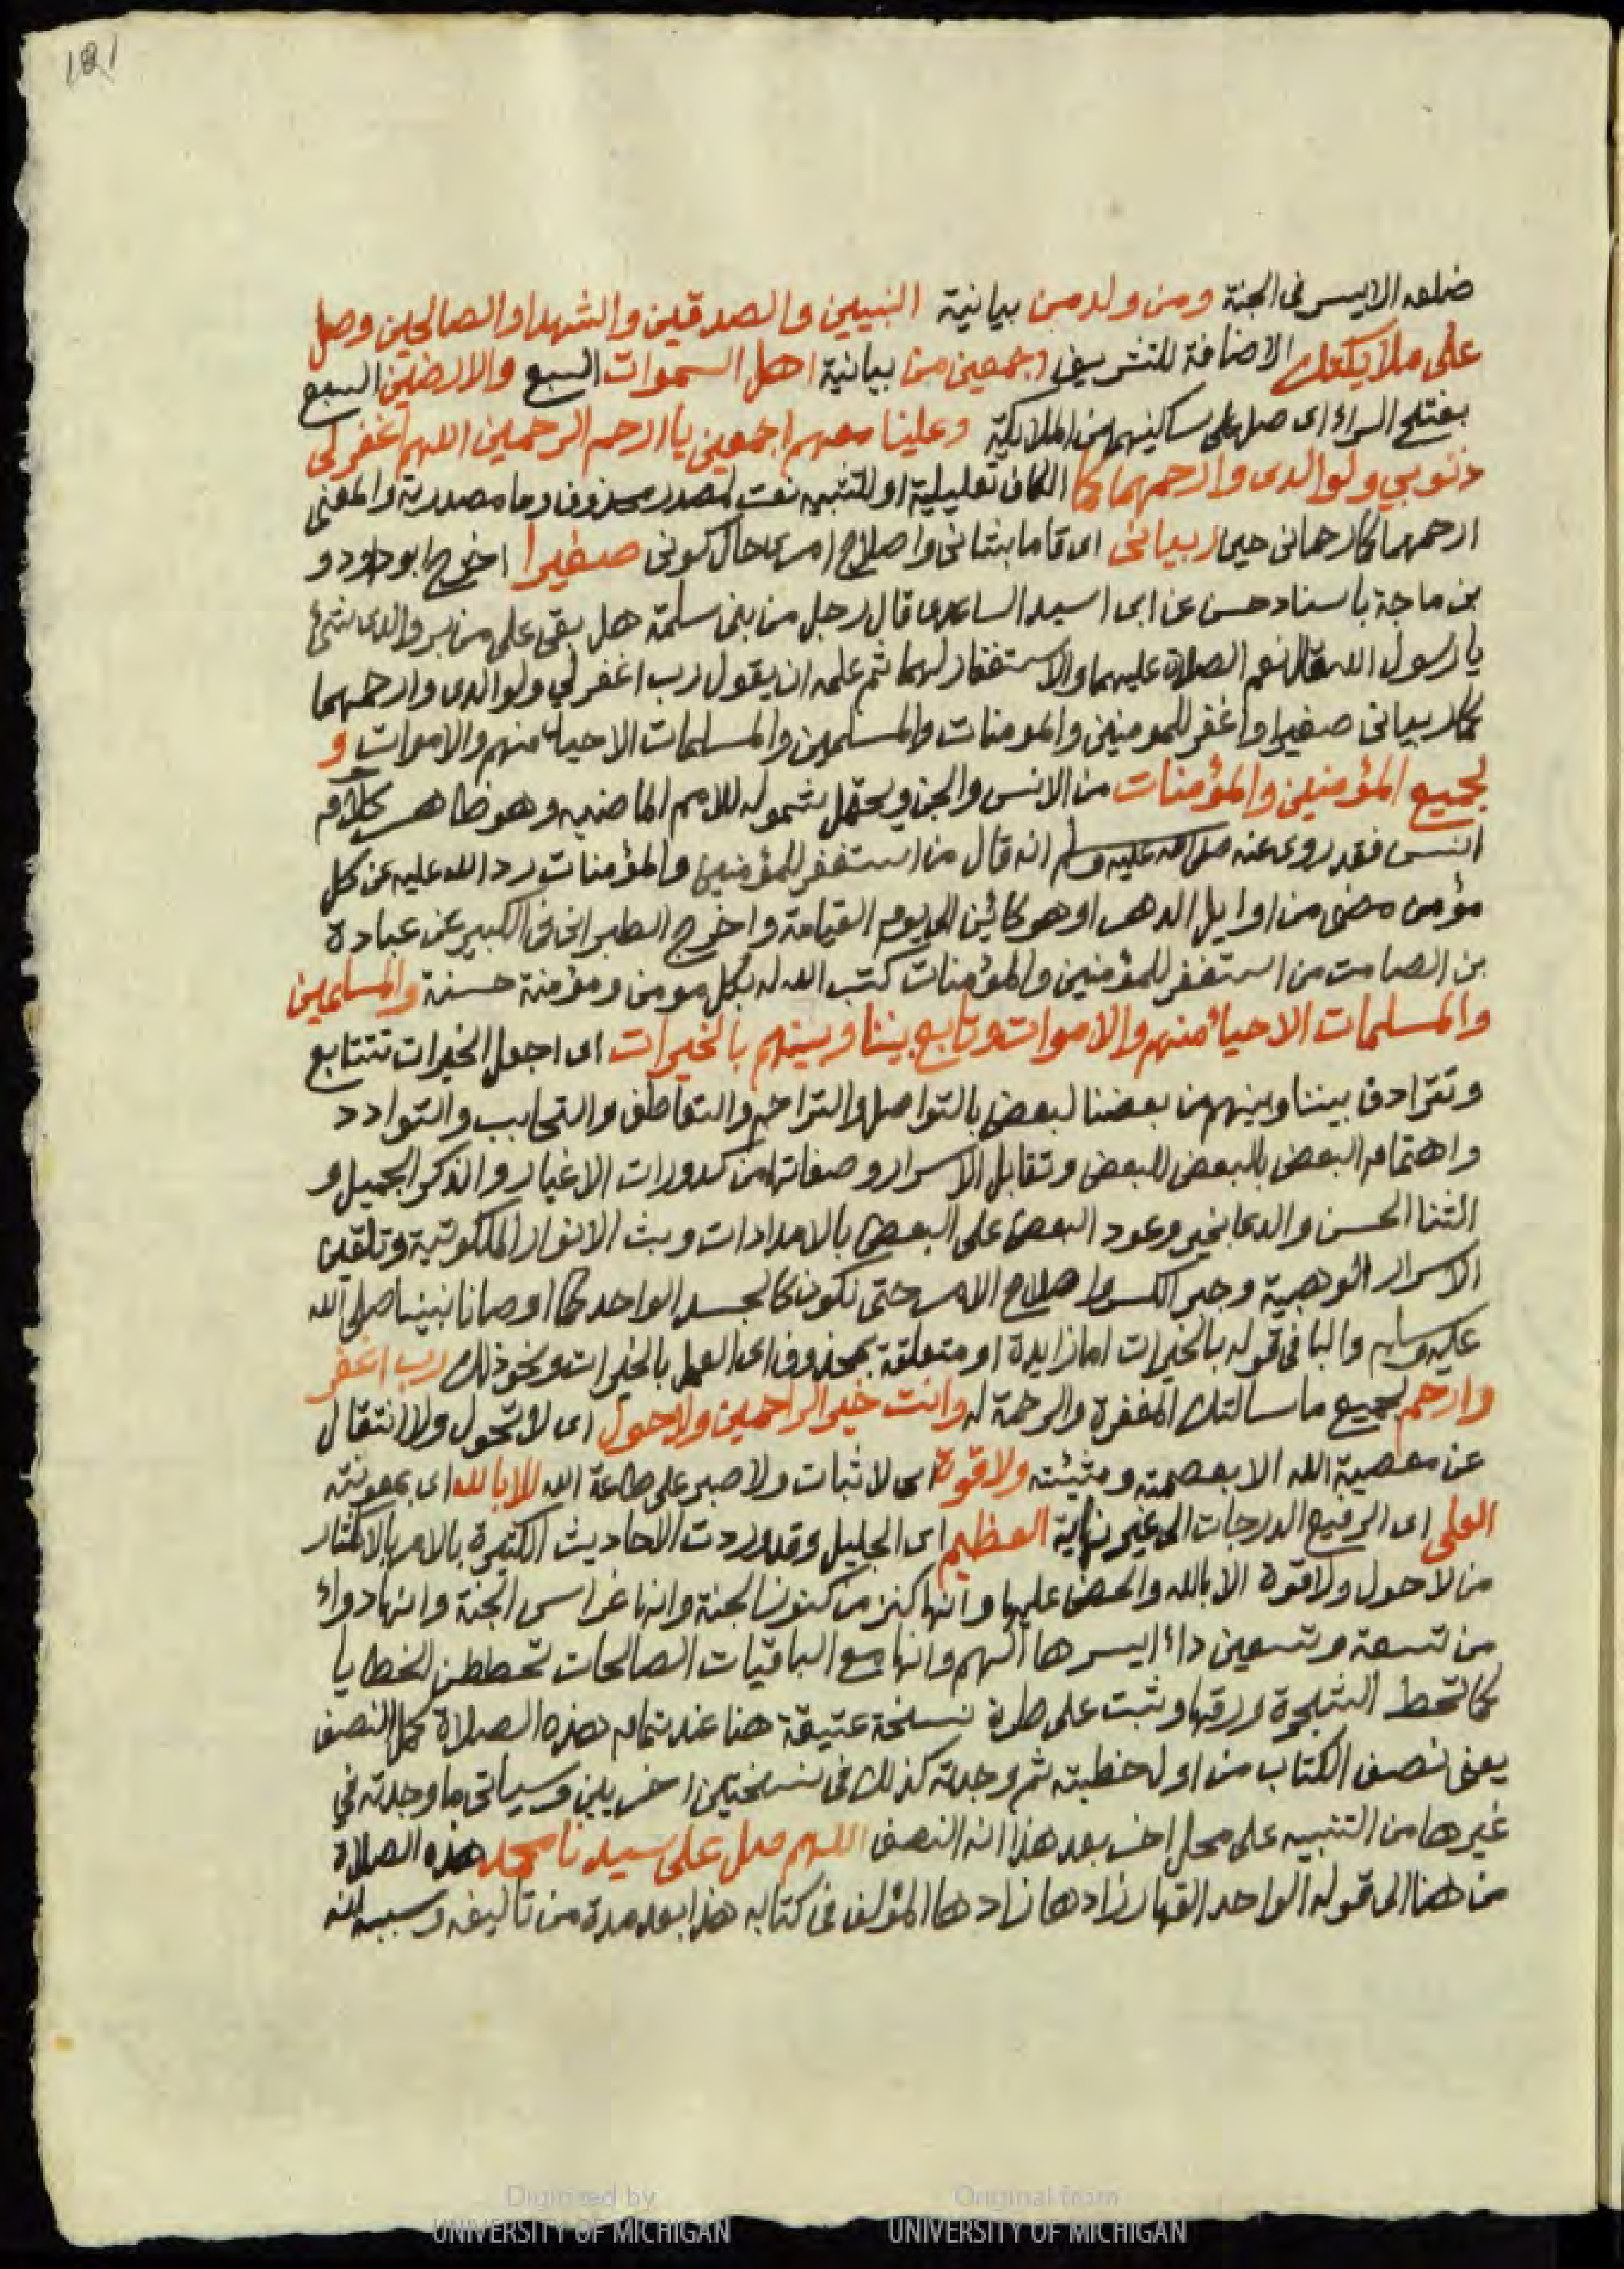 181
ضلعه الايسر في الجنة ومن ولد من بيانية النبيين والصدقين والشهدا والصالحين وصل
على ملايكتك الاضافة للتشريف اجمعين من بيانية اهل السموات السبع والارضين السبع
بفتح الراء اى صل على ساكنيهم من الملايكة وعلينا معهم اجمعين يا ارحم الرحمين اللهم اغفر لي
ذنوبي ولوالدى وارحمهما كما الكاف تعليلية او للتشبيه نعت لمصدر محذوف وما مصدرية والمعنى
ارحمهما كما رحمانى حين ربيانى اى قاما بشانى واصلاح امرى حال كونى صغيرا اخرج ابو داود و
بن ماجة باسناد حسن عن ابى اسيد الساعدى قال رجل من بنى سلمة هل بقى على من بر والدى شئ
يا رسول الله قال نعم الصلاة عليهما والاستغفار لهما ثم علمه ان يقول رب اغفر لي ولوالدى وارحمهما
كما ربيانى صغيرا واغفر للمومنين والمومنات والمسلمين والمسلمات الاحياء منهم والاموات و
لجميع المؤمنين والمؤمنات من الانس والجن ويحتمل شموله للامم الماضيه وهو ظاهر كلام
انس فقد روى عنه صلى الله عليه وسلم انه قال من استغفر للمؤمنين والمؤمنات رد الله عليه عن كل
مؤمن مضى من اوايل الدهر او هو كائن الى يوم القيامة واخرج الطبرانى فى الكبير عن عبادة
بن الصامت من استغفر للمؤمنين والمؤمنات كتب الله له بكل مومن ومؤمنة حسنة والمسلمين
والمسلمات الاحياء منهم والاموات وتابع بيننا وبينهم بالخيرات اى اجعل الخيرات تتتابع
وتترادف بيننا وبينهم من بعضنا لبعض بالتواصل والتراحم والتعاطف والتحابب والتوادد
واهتمام البعض بالبعض للبعض وتقابل الاسرار وصفاتها من كدورات الاغيار والذكر الجميل و
الثنا الحسن والدعا بخير وعود البعض على البعض بالامدادات وبث الانوار الملكوتية وتلقين
الاسرار الوهبية وجبر الكسر واصلاح الامر حتى نكون كالجسد الواحد كما اوصانا نبينا صلى الله
عليه وسلم والبا فى قوله بالخيرات اما زايدة او متعلقة بمحذوف اى العمل بالخيرات ونحو ذلك رب اغفر
وارحم لجميع ما سالتك المغفرة والرحمة له وانت خير الراحمين ولا حول اى لا تحول ولا انتقال
عن معصية الله الا بعصمته ومشيئته ولا قوة اى لا ثبات ولا صبر على طاعة الله الا بالله اى بمعونته
العلى اى الرفيع الدرجات الى غير نهاية العظيم اى الجليل وقد وردت الاحاديث الكثيرة بالامر بالاكثار
من لا حول ولا قوة الا بالله والحض عليها وانها كنز من كنوز الجنة وانها غراس الجنة وانها دواء
من تسعة وتسعين داء ايسرها الهم وانها مع الباقيات الصالحات تحططن الخطايا
كما تحط الشجرة ورقها وثبت على طرة نسخة عتيقة هنا عند تمام هذه الصلاة كمل النصف
يعنى نصف الكتاب من اول خطبته ثم وجدته كذلك فى نسختين اخريين وسياتى ما وجدته في
غيرها من التنبيه على محل اخر بعد هذا انه النصف اللهم صل على سيدنا محمد هذه الصلاة
من هنا الى قوله الواحد القهار زادها زادها المؤلف فى كتابه هذا بعد مدة من تاليفه وسببه انه
Digitized by
UNIVERSITY OF MICHIGAN
Original from
UNIVERSITY OF MICHIGAN